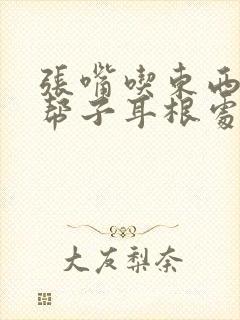 張嘴喫東西
帮子耳根處
大友梨奈